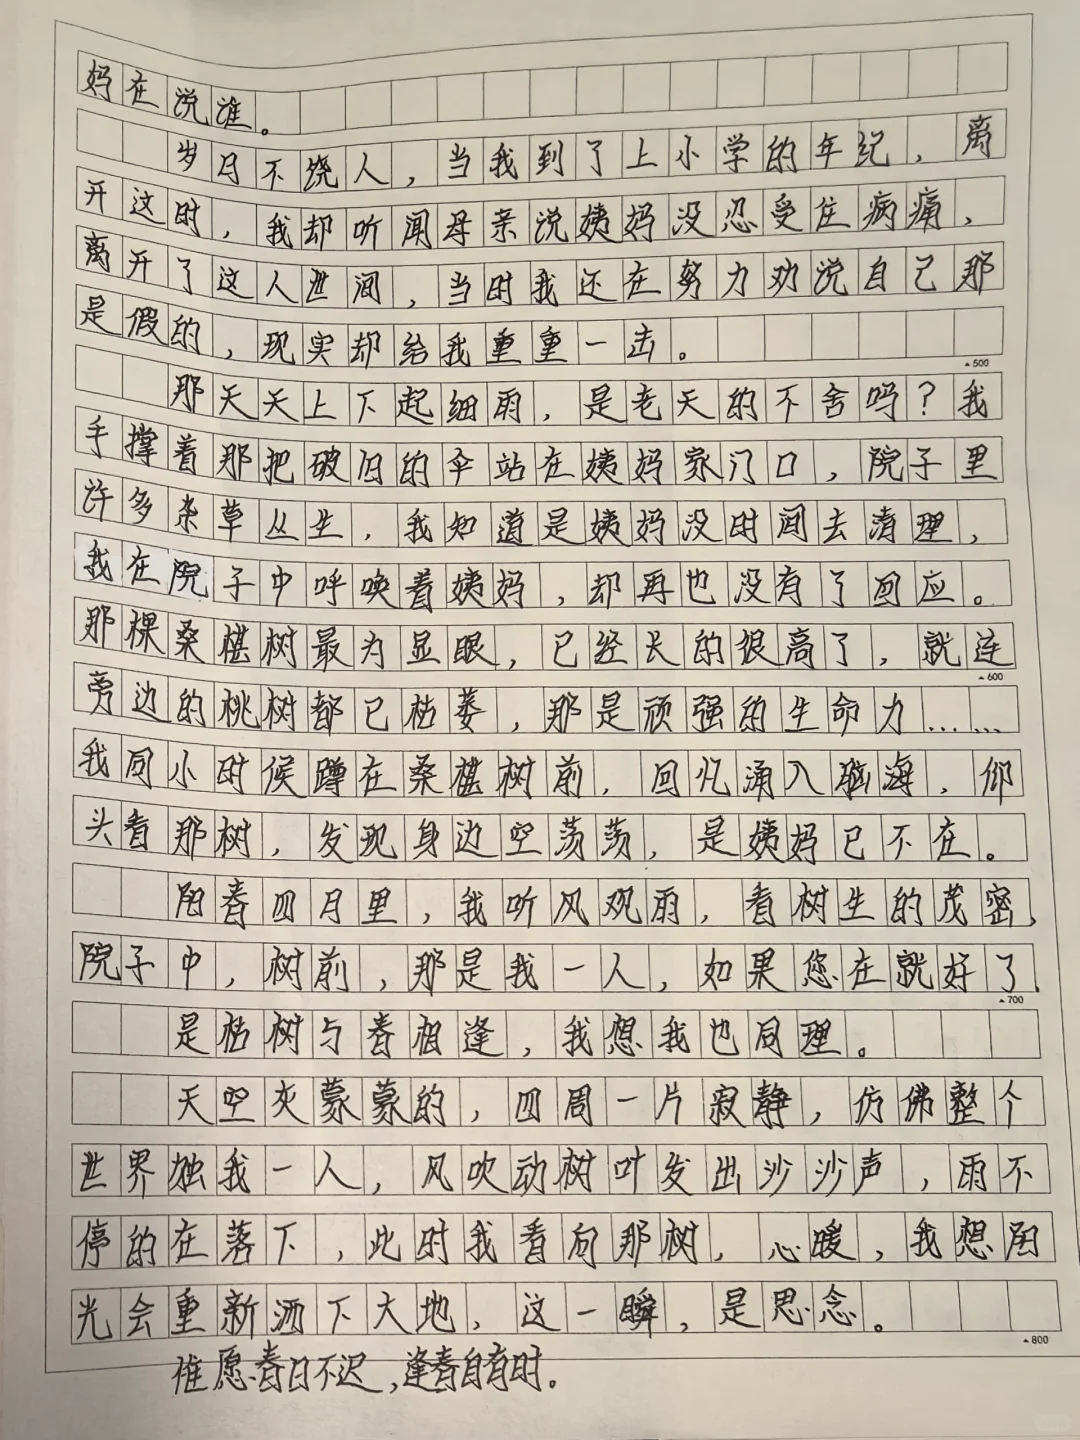 妈在说谁。
岁月不饶人，当我到了上小学的年纪，离
开这时，我却听闻母亲说姨妈没忍受住病痛，
离开了这人世间，当时我还在努力劝说自己那
是假的，现实却给我重重一击。
▲500
那天天上下起细雨，是老天的不舍吗？我
手撑着那把破旧的伞站在姨妈家门口，院子里
许多杂草丛生，我知道是姨妈没时间去清理，
我在院子中呼唤着姨妈，却再也没有了回应。
那棵桑椹树最为显眼，已经长的很高了，就连
▲600
旁边的桃树都已枯萎，那是顽强的生命力……
我同小时候蹲在桑椹树前，回忆涌入脑海，仰
头看那树，发现身边空荡荡，是姨妈已不在。
阳春四月里，我听风观雨，看树生的茂密，
院子中，树前，那是我一人，如果您在就好了，
▲700
是枯树与春相逢，我想我也同理。
天空灰蒙蒙的，四周一片寂静，仿佛整个
世界独我一人，风吹动树叶发出沙沙声，雨不
停的在落下，此时我看向那树，心暖，我想阳
光会重新洒下大地，这一瞬，是思念。
▲800
惟愿春日不迟，逢春自有时。